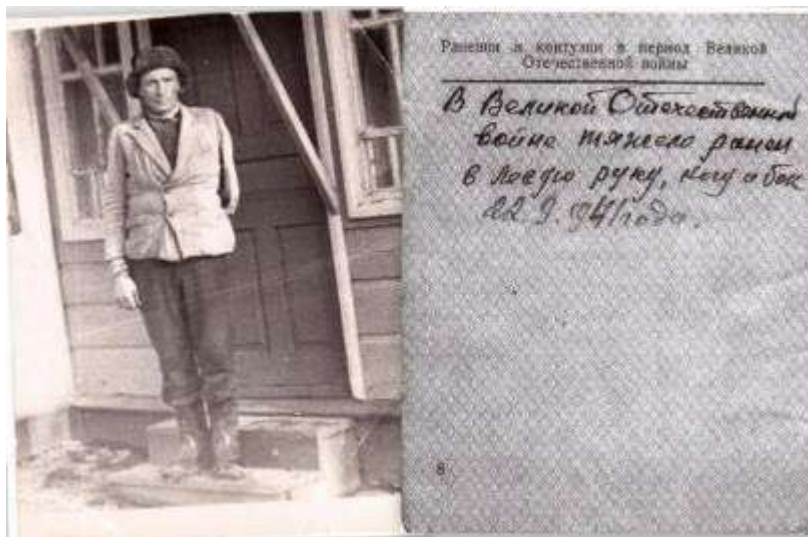 Ранения и контузии в период Великой
Отечественной войны
В Великой Отечественной
войне тяжело ранен
в левую руку, ногу и бок
22.9.1941 года.
8